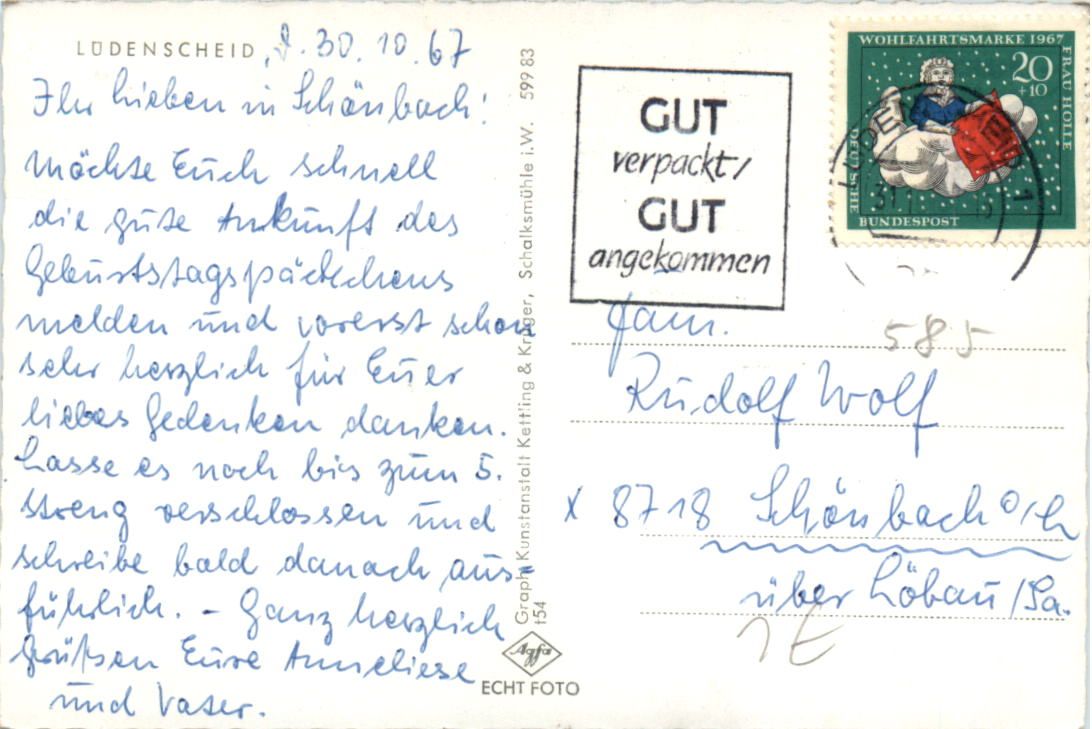 LÜDENSCHEID, d. 30.10.67
Ihr Lieben in Schönbach!
Möchte Euch schnell
die gute Ankunft des
Geburtstagspäckchens
melden und vorerst schon
sehr herzlich für Euer
liebes Gedenken danken.
Lasse es noch bis zum 5.
streng verschlossen und
schreibe bald danach aus=
führlich. – Ganz herzlich
Grüßen Eure Anneliese
und Vater.
Graph. Kunstanstalt Kettling & Krüger, Schalksmühle i.W. 599 83
t54
Agfa
ECHT FOTO
GUT
verpackt/
GUT
angekommen
WOHLFAHRTSMARKE 1967
FRAU HOLLE
20
+10
DEUTSCHE
BUNDESPOST
31
1
Fam.
585
Rudolf Wolf
X 8718 Schönbach
über Löbau/Sa.